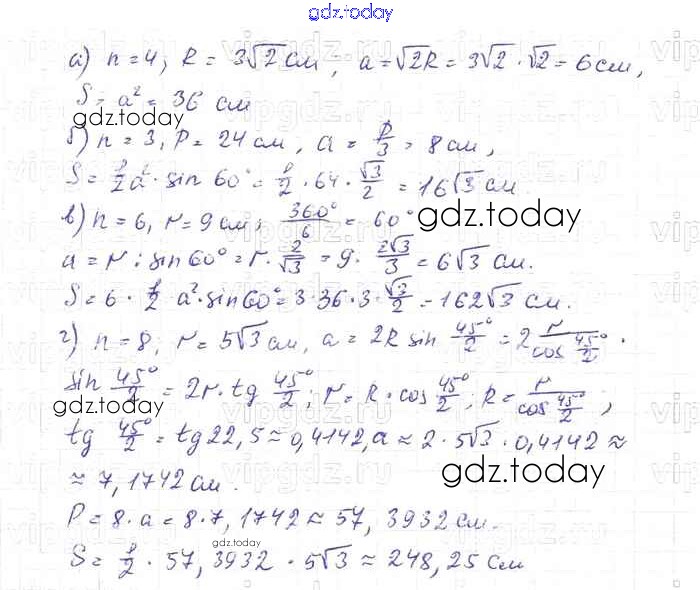 gdz.today
а) n = 4, R = 3√2 см, a = √2R = 3√2 · √2 = 6 см,
S = a² = 36 см
gdz.today
б) n = 3, P = 24 см, a = P/3 = 8 см,
S = 1/2 a² · sin 60° = 1/2 · 64 · √3/2 = 16√3 см.
в) n = 6, r = 9 см; 360°/6 = 60°
gdz.today
a = r : sin 60° = r · 2/√3 = 9 · 2√3/3 = 6√3 см.
S = 6 · 1/2 a² · sin 60° = 3 · 36 · 3 · √3/2 = 162√3 см.
г) n = 8, r = 5√3 см, a = 2R sin 45°/2 = 2 r/cos 45°/2 ·
sin 45°/2 = 2r · tg 45°/2; r = R · cos 45°/2; R = r/cos 45°/2;
gdz.today
tg 45°/2 = tg 22,5 ≈ 0,4142, a ≈ 2 · 5√3 · 0,4142 ≈
gdz.today
≈ 7,1742 см.
P = 8 · a = 8 · 7,1742 ≈ 57,3932 см.
S = 1/2 · 57,3932 · 5√3 ≈ 248,25 см